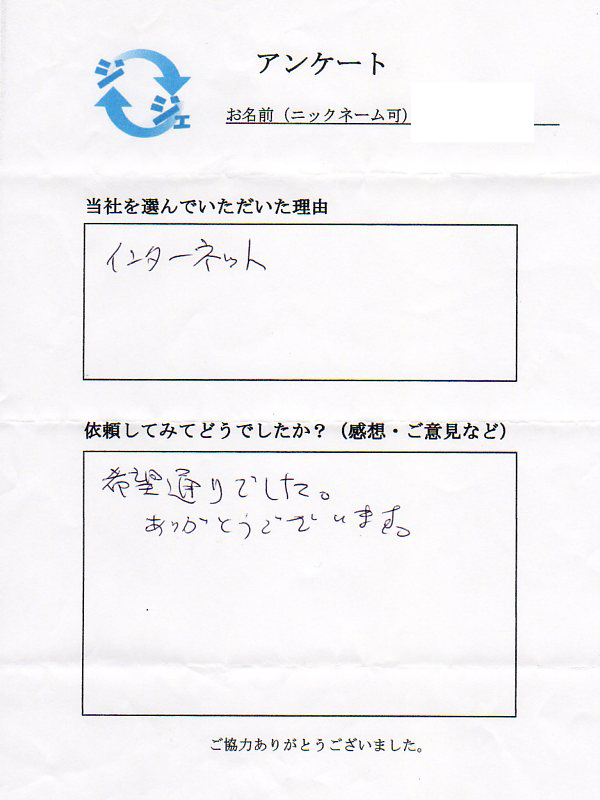 ジジェ
アンケート
お名前（ニックネーム可）
当社を選んでいただいた理由
インターネット
依頼してみてどうでしたか？（感想・ご意見など）
希望通りでした。
ありがとうございます。
ご協力ありがとうございました。